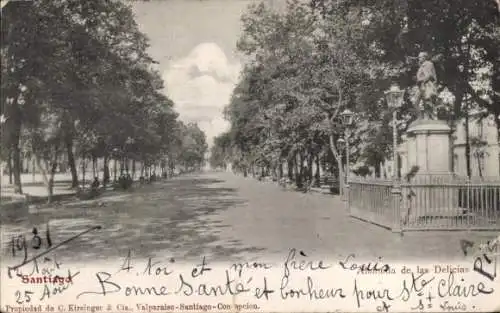 Santiago
Alameda de las Delicias
A toi et à mon frère Louis
Bonne Santé et bonheur pour Ste Claire
et St Louis.
25 Août
Propiedad de C. Kirsinger & Cia., Valparaiso-Santiago-Concepcion.